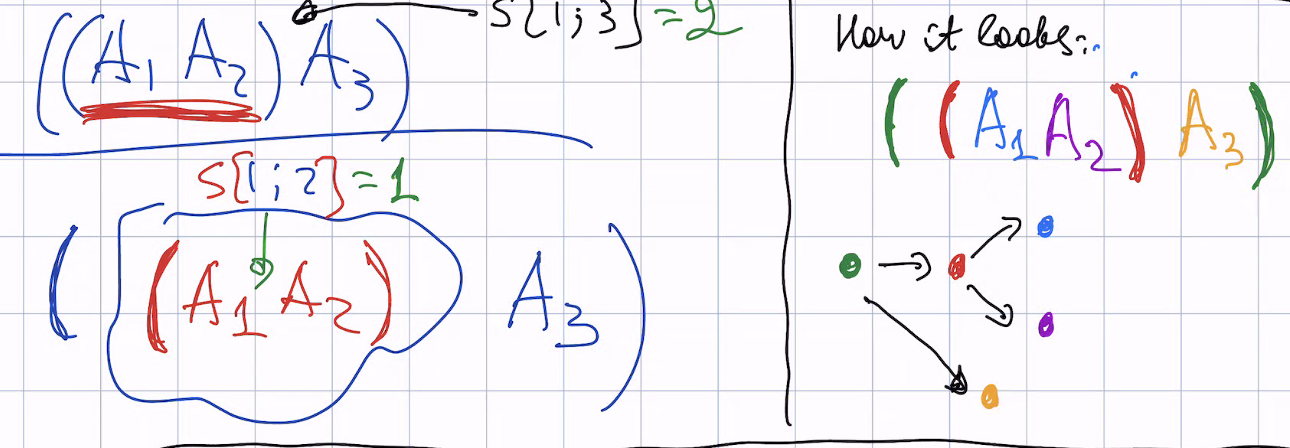 s[1;3] = 2
((A1 A2) A3)
s[1;2] = 1
((A1 A2) A3)
How it looks:
((A1 A2) A3)